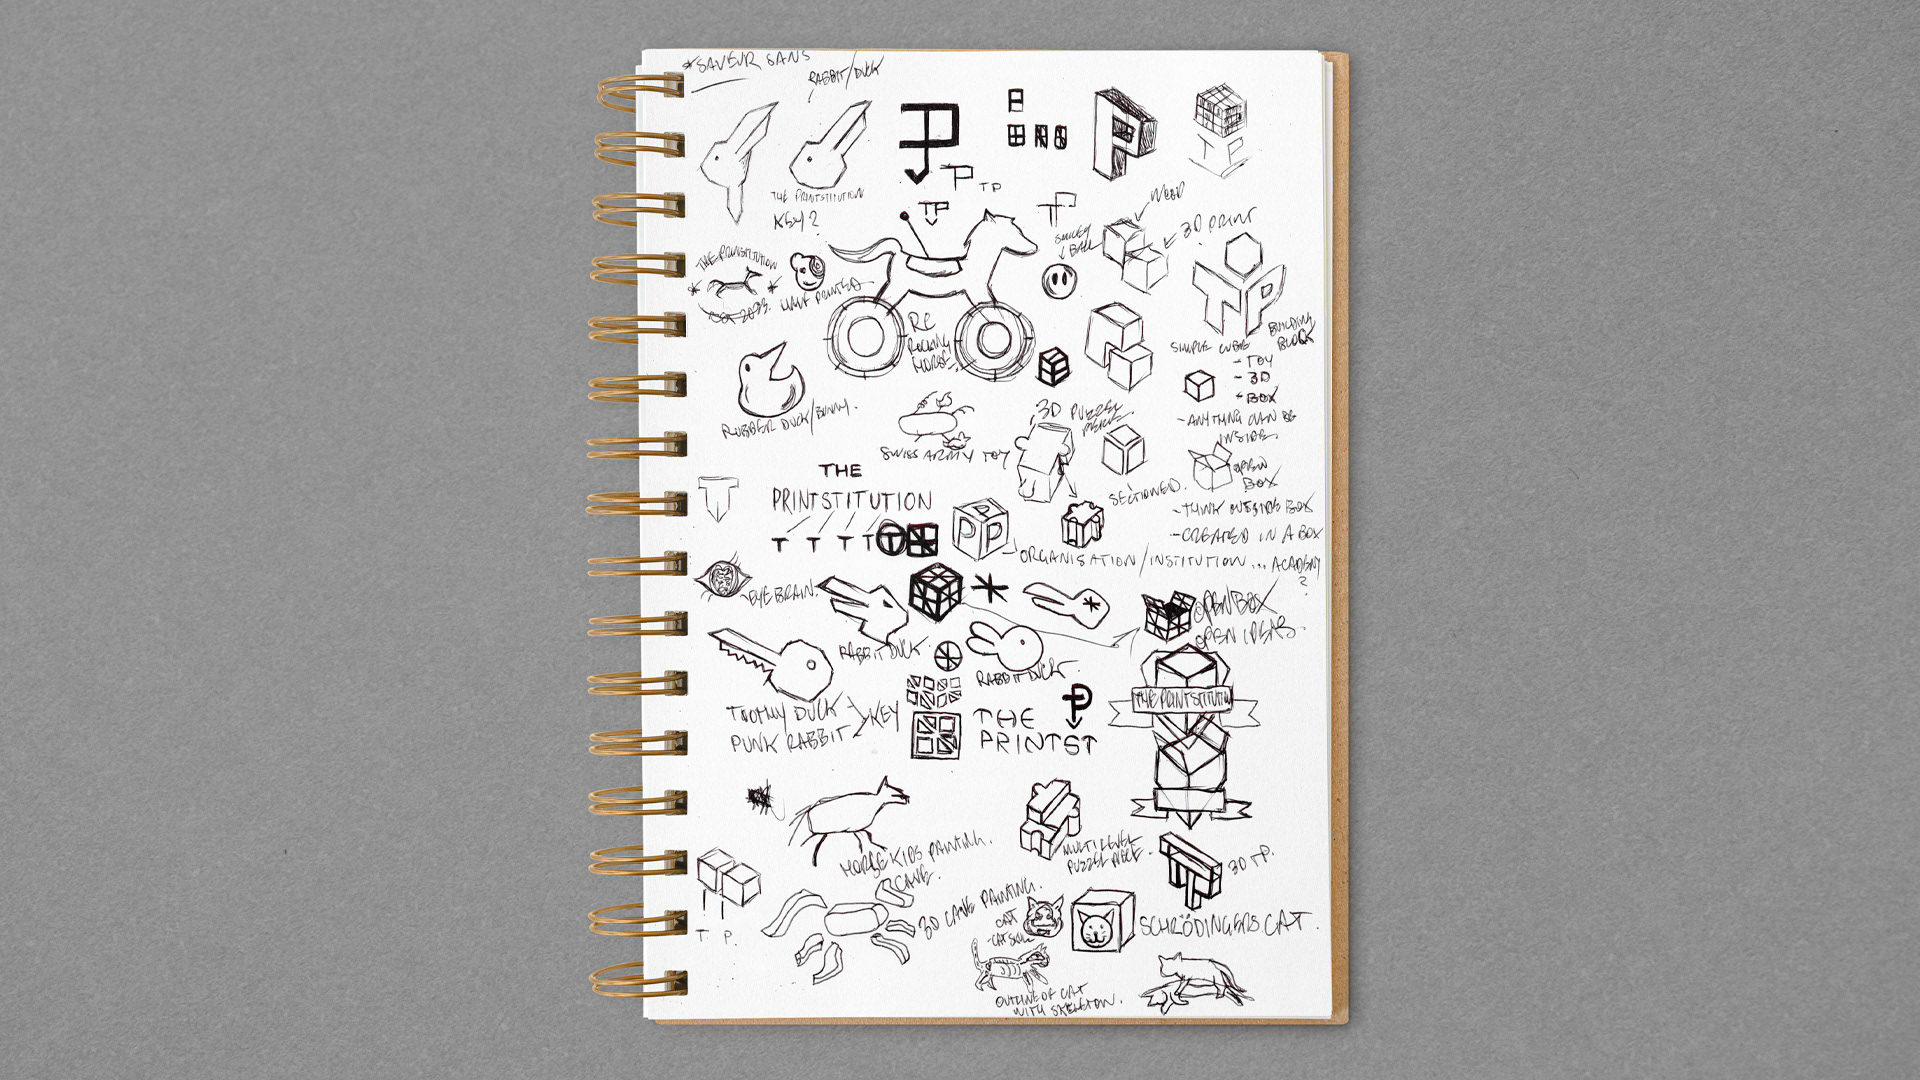 *SAVEUR SANS
RABBIT/DUCK
P
TP
TP
THE PRINTSTITUTION
KEY?
TP
TP
TP
WOOD
3D PRINT
SMILEY
BALL
THE PRINSTITUTION
HAVE PRINTED
TP
RC
ROCKING
HORSE
BUILDING
BLOCK
SIMPLE CUBE
- TOY
- 3D
- BOX
- ANYTHING CAN BE
INSIDE.
RUBBER DUCK/BUNNY.
SWISS ARMY TOY
3D PUZZLE
PIECE
OPEN
BOX
SECTIONED.
THE
PRINTSTITUTION
T T T T T
PPP
- THINK OUTSIDE BOX
- CREATED IN A BOX
ORGANISATION/INSTITUTION... ACADEMY
?
EYE BRAIN.
RABBIT DUCK
RABBIT DUCK.
OPEN BOX
OPEN IDEAS.
THE PRINTSTITUTION
TOOTHY DUCK
PUNK RABBIT
KEY
THE P
PRINTST
HORSE KIDS PAINTING.
CAVE.
MULTI LEVEL
PUZZLE PIECE.
3D TP.
T P.
3D CAVE PAINTING.
CAT
SCHRÖDINGERS CAT.
OUTLINE OF CAT
WITH SKELETON.